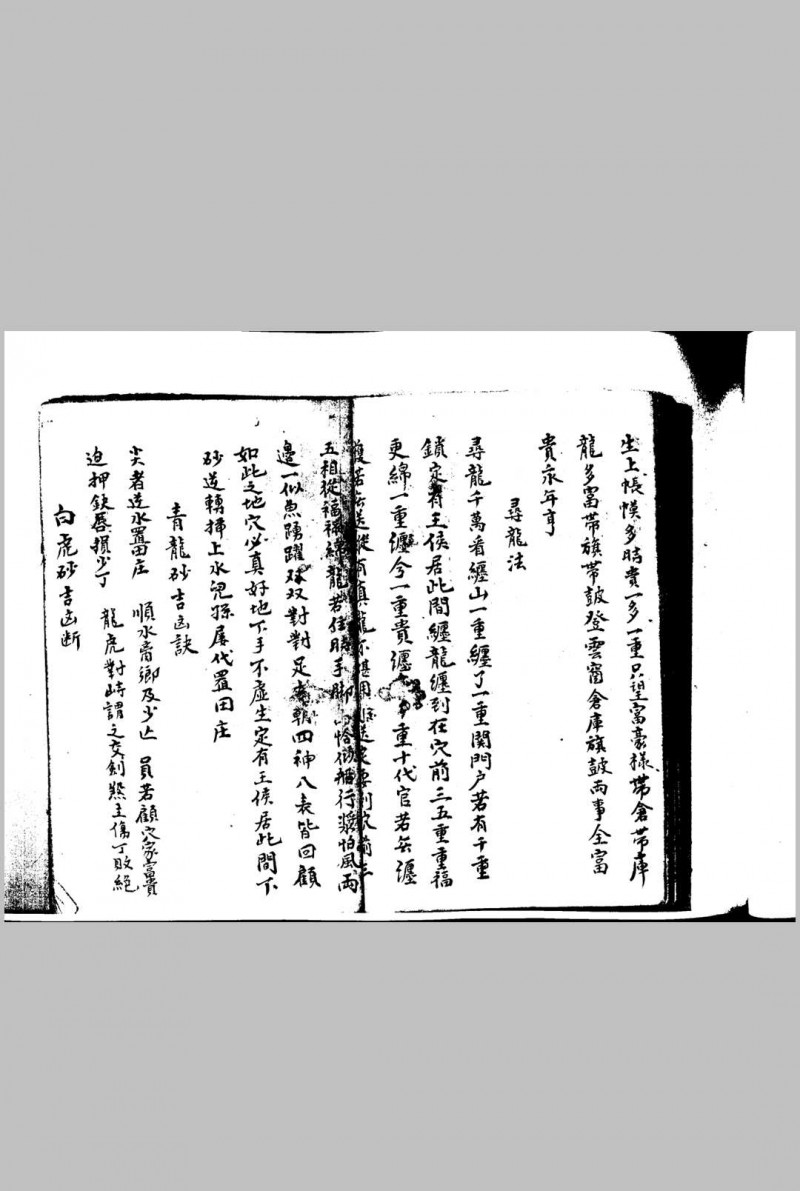 生上帳幙多時貴一多一重只望富豪樣帶倉帶庫
龍多富帶旗帶鼓登雲霄倉庫旗鼓両事全富
貴永年亨
尋龍法
尋龍千萬看纏山一重纏了一重関門户若有千重
鎖定有王侯居此間纏龍纏到在穴前三五重重福
更綿一重纏兮一重貴纏多重十代官若無纏
護若無送從有真龍不堪用送定要到穴前三
五相從福祿綿龍若住時手脚恰似船行槳怕風雨
邊一似魚踴躍双双對對足朝四神八表皆回顧
如此之地穴必真好地下手不虛生定有王侯居此間下
砂送轉掃上水児孫屢代置田庄
青龍砂吉凶訣
尖者送水置田庄 順水离鄉及少亡 員若顧穴家富貴
迫押缺唇損少丁 龍虎對峙謂之交劍煞主傷丁敗絕
白虎砂吉凶断